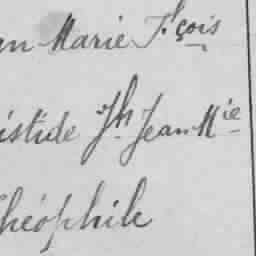 an Marie F.çois
istide Jh Jean Mie
héophile